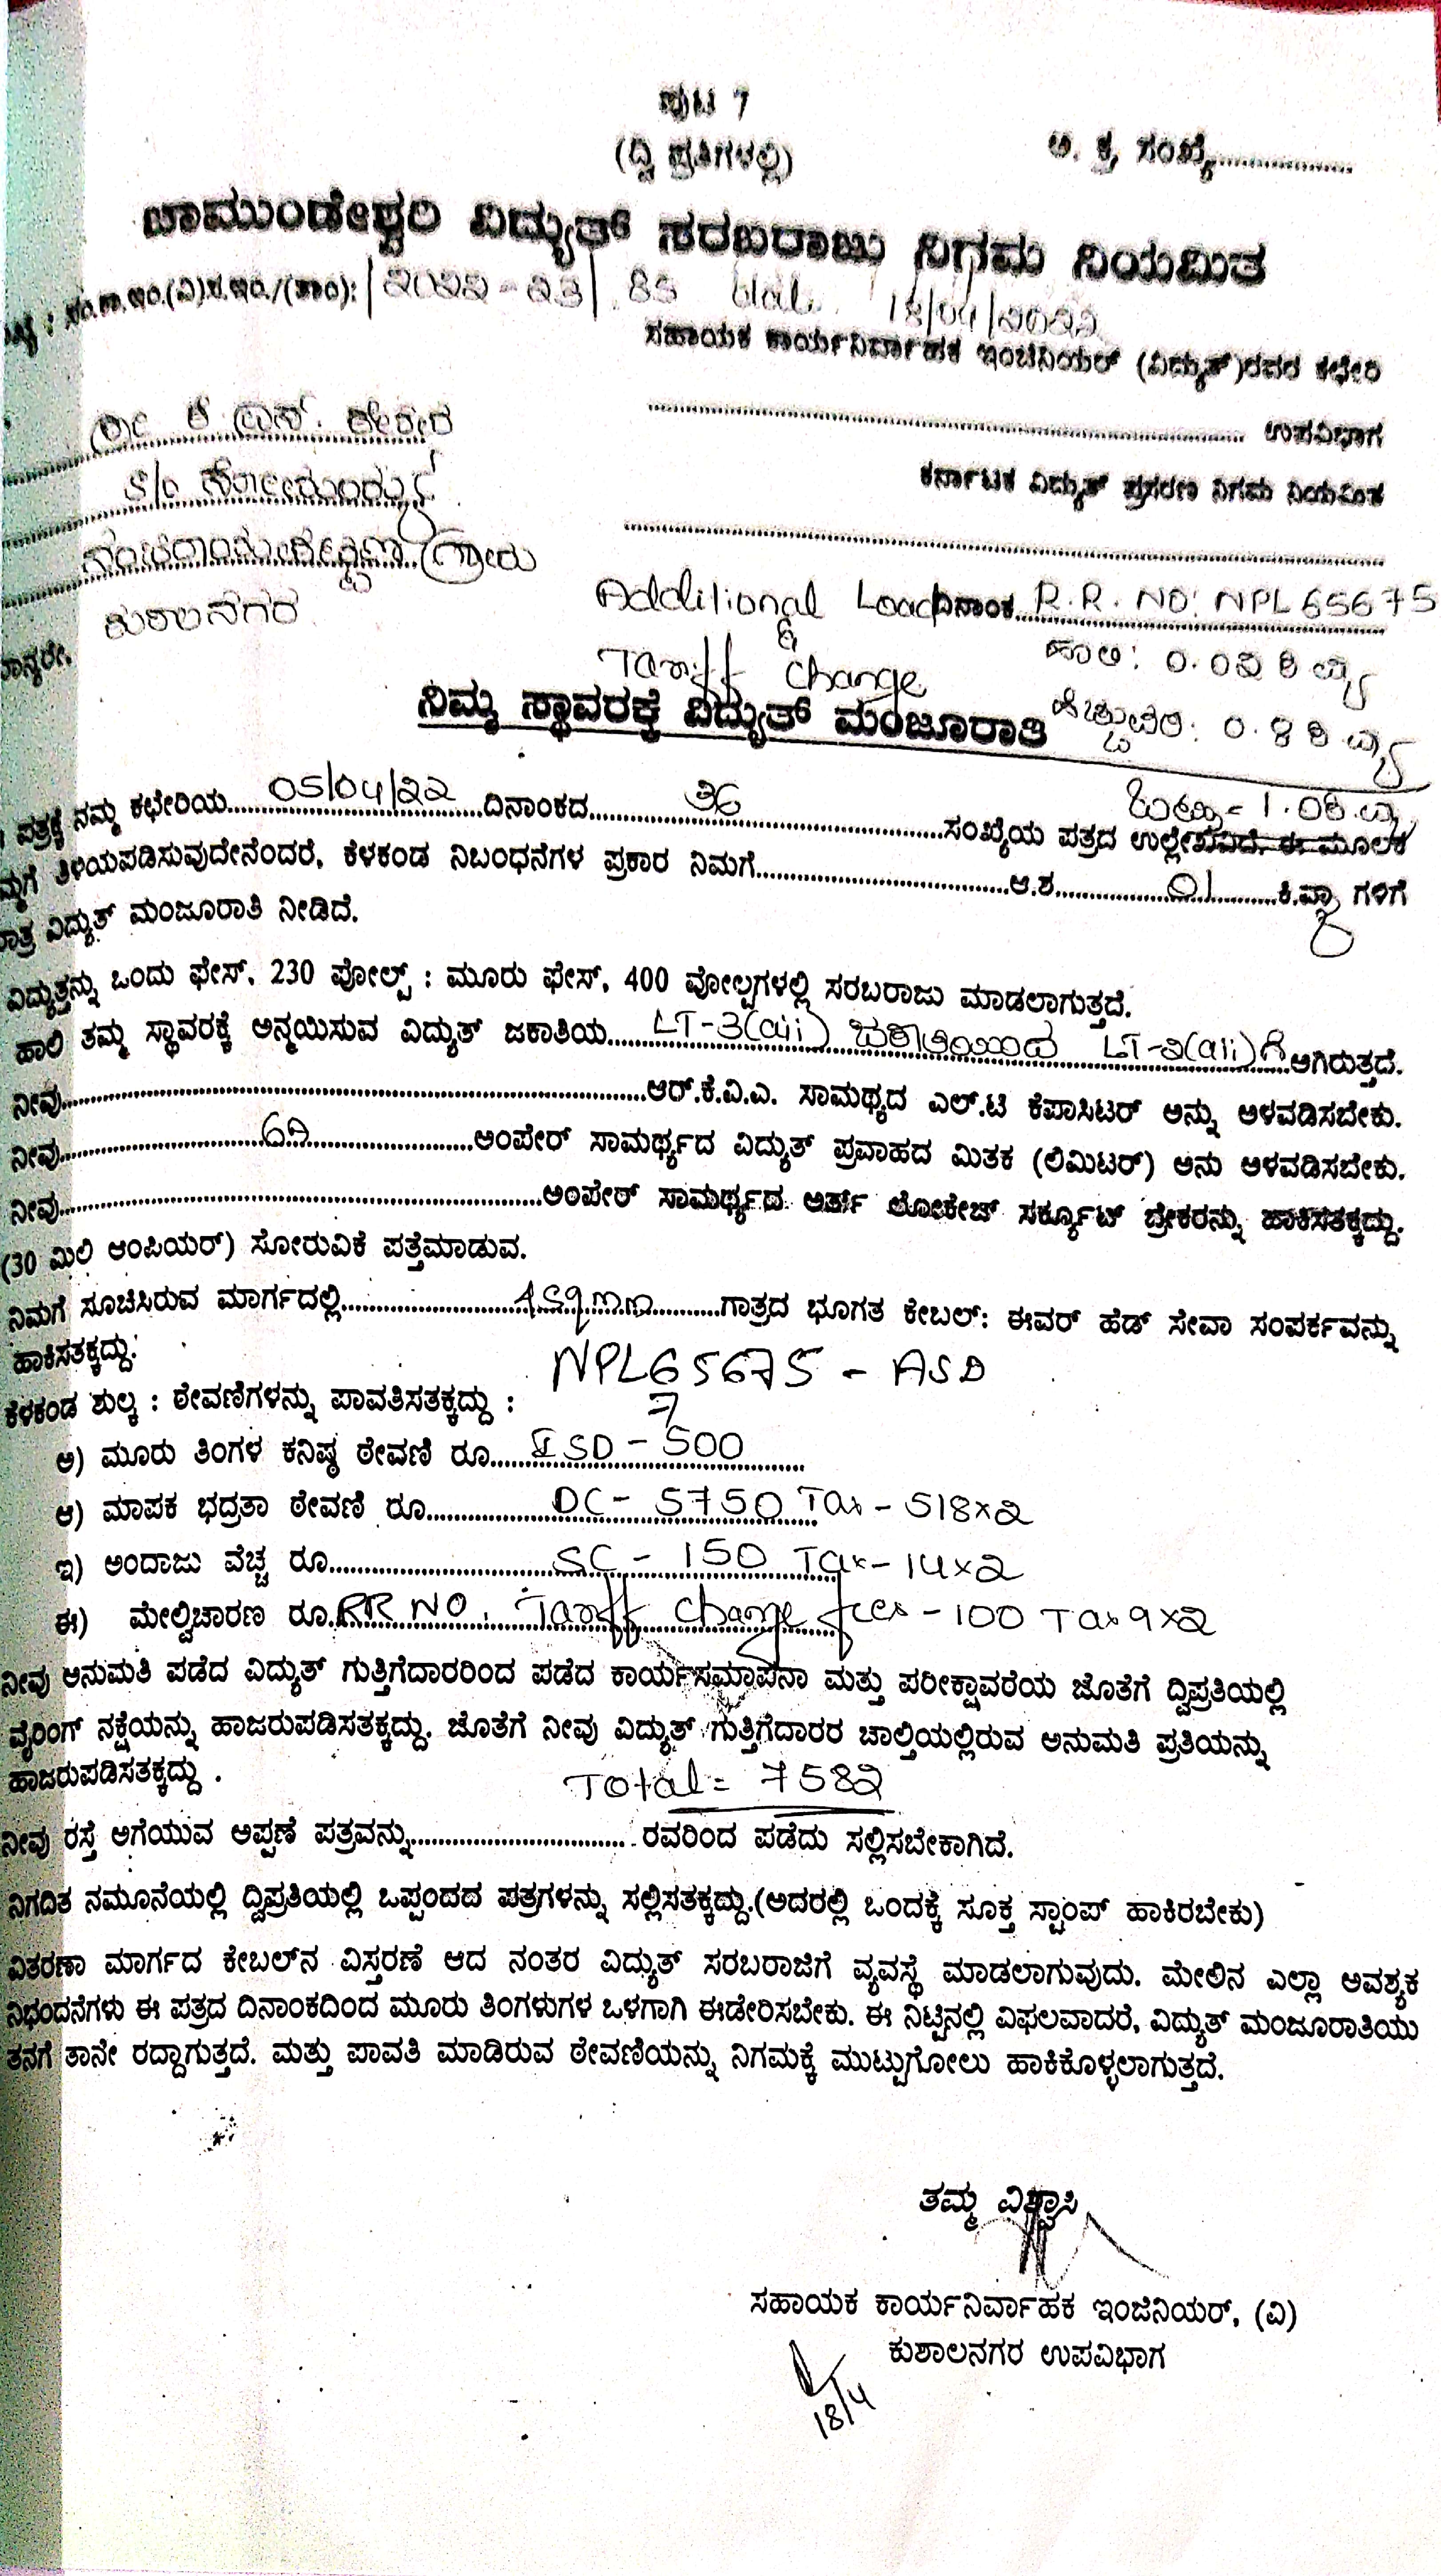 ಪುಟ 7
(ದ್ವಿ ಪ್ರತಿಗಳಲ್ಲಿ)
ಅ. ಕ್ರ. ಸಂಖ್ಯೆ....................
ಚಾಮುಂಡೇಶ್ವರಿ ವಿದ್ಯುತ್ ಸರಬರಾಜು ನಿಗಮ ನಿಯಮಿತ
ಸ.ಕಾ.ಇಂ.(ವಿ)ಕು.ಇಂ./(ತಾಂ):/2022-23/ 83 18/04/2022
ಸಹಾಯಕ ಕಾರ್ಯನಿರ್ವಾಹಕ ಇಂಜಿನಿಯರ್ (ವಿದ್ಯುತ್)ರವರ ಕಛೇರಿ
ಶ್ರೀ ಕೆ ಎಸ್.
.................... ಉಪವಿಭಾಗ
S/o
ಕರ್ನಾಟಕ ವಿದ್ಯುತ್ ಪ್ರಸರಣ ನಿಗಮ ನಿಯಮಿತ
ಗ್ರಾಮ
ಕುಶಾಲನಗರ
Additional Load ದಿನಾಂಕ R.R. NO: NPL 65675
&
ಮಾನ್ಯರೇ,
Tariff Change ಹಾಲಿ: 0.02 ಕಿ.ವ್ಯಾ
ನಿಮ್ಮ ಸ್ಥಾವರಕ್ಕೆ ವಿದ್ಯುತ್ ಮಂಜೂರಾತಿ ಹೆಚ್ಚುವರಿ: 0.98 ಕಿ.ವ್ಯಾ
ಒಟ್ಟು = 1.0 ಕಿ.ವ್ಯಾ
ಪತ್ರಕ್ಕೆ ನಮ್ಮ ಕಛೇರಿಯ....05/04/22....ದಿನಾಂಕದ....36....ಸಂಖ್ಯೆಯ ಪತ್ರದ ಉಲ್ಲೇಖವಿದೆ. ಈ ಮೂಲಕ
ನಿಮ್ಮಗೆ ತಿಳಿಯಪಡಿಸುವುದೇನೆಂದರೆ, ಕೆಳಕಂಡ ನಿಬಂಧನೆಗಳ ಪ್ರಕಾರ ನಿಮಗೆ....................ಆ.ಶ..........01..........ಕಿ.ವ್ಯಾ ಗಳಿಗೆ
ಮಾತ್ರ ವಿದ್ಯುತ್ ಮಂಜೂರಾತಿ ನೀಡಿದೆ.
ವಿದ್ಯುತ್ತನ್ನು ಒಂದು ಫೇಸ್, 230 ವೋಲ್ಟ್ : ಮೂರು ಫೇಸ್, 400 ವೋಲ್ಟಗಳಲ್ಲಿ ಸರಬರಾಜು ಮಾಡಲಾಗುತ್ತದೆ.
ಹಾಲಿ ತಮ್ಮ ಸ್ಥಾವರಕ್ಕೆ ಅನ್ವಯಿಸುವ ವಿದ್ಯುತ್ ಜಕಾತಿಯ....LT-3(aii) ಜಕಾತಿಯಿಂದ LT-2(aii) ಗೆ ಆಗಿರುತ್ತದೆ.
ನೀವು....................ಆರ್.ಕೆ.ವಿ.ಎ. ಸಾಮಥ್ಯದ ಎಲ್.ಟಿ ಕೆಪಾಸಿಟರ್ ಅನ್ನು ಅಳವಡಿಸಬೇಕು.
ನೀವು..........6A..........ಅಂಪೇರ್ ಸಾಮರ್ಥ್ಯದ ವಿದ್ಯುತ್ ಪ್ರವಾಹದ ಮಿತಕ (ಲಿಮಿಟರ್) ಅನು ಅಳವಡಿಸಬೇಕು.
ನೀವು....................ಅಂಪೇರ್ ಸಾಮರ್ಥ್ಯದ ಅರ್ತ್ ಲೋಕೇಜ್ ಸರ್ಕ್ಯೂಟ್ ಬ್ರೇಕರನ್ನು ಹಾಕಿಸತಕ್ಕದ್ದು.
(30 ಮಿಲಿ ಆಂಪಿಯರ್) ಸೋರುವಿಕೆ ಪತ್ತೆಮಾಡುವ.
ನಿಮಗೆ ಸೂಚಿಸಿರುವ ಮಾರ್ಗದಲ್ಲಿ..........4sqmm..........ಗಾತ್ರದ ಭೂಗತ ಕೇಬಲ್: ಈವರ್ ಹೆಡ್ ಸೇವಾ ಸಂಪರ್ಕವನ್ನು
ಹಾಕಿಸತಕ್ಕದ್ದು.
NPL65675 - ASD
ಕೆಳಕಂಡ ಶುಲ್ಕ : ಠೇವಣಿಗಳನ್ನು ಪಾವತಿಸತಕ್ಕದ್ದು :
ಅ) ಮೂರು ತಿಂಗಳ ಕನಿಷ್ಠ ಠೇವಣಿ ರೂ.....ISD - 500
ಆ) ಮಾಪಕ ಭದ್ರತಾ ಠೇವಣಿ ರೂ.....DC - 5750 Tax - 518x2
ಇ) ಅಂದಾಜು ವೆಚ್ಚ ರೂ.....SC - 150 Tax - 14x2
ಈ) ಮೇಲ್ವಿಚಾರಣ ರೂ.RR NO. Tariff Change fees - 100 Tax 9x2
ನೀವು ಅನುಮತಿ ಪಡೆದ ವಿದ್ಯುತ್ ಗುತ್ತಿಗೆದಾರರಿಂದ ಪಡೆದ ಕಾರ್ಯಸಮಾಪನಾ ಮತ್ತು ಪರೀಕ್ಷಾವರೆಯ ಜೊತೆಗೆ ದ್ವಿಪ್ರತಿಯಲ್ಲಿ
ವೈರಿಂಗ್ ನಕ್ಷೆಯನ್ನು ಹಾಜರುಪಡಿಸತಕ್ಕದ್ದು. ಜೊತೆಗೆ ನೀವು ವಿದ್ಯುತ್ ಗುತ್ತಿಗೆದಾರರ ಚಾಲ್ತಿಯಲ್ಲಿರುವ ಅನುಮತಿ ಪ್ರತಿಯನ್ನು
ಹಾಜರುಪಡಿಸತಕ್ಕದ್ದು .
Total = 7582
ನೀವು ರಸ್ತೆ ಅಗೆಯುವ ಅಪ್ಪಣೆ ಪತ್ರವನ್ನು....................ರವರಿಂದ ಪಡೆದು ಸಲ್ಲಿಸಬೇಕಾಗಿದೆ.
ನಿಗದಿತ ನಮೂನೆಯಲ್ಲಿ ದ್ವಿಪ್ರತಿಯಲ್ಲಿ ಒಪ್ಪಂದದ ಪತ್ರಗಳನ್ನು ಸಲ್ಲಿಸತಕ್ಕದ್ದು.(ಅದರಲ್ಲಿ ಒಂದಕ್ಕೆ ಸೂಕ್ತ ಸ್ಟಾಂಪ್ ಹಾಕಿರಬೇಕು)
ವಿತರಣಾ ಮಾರ್ಗದ ಕೇಬಲ್‌ನ ವಿಸ್ತರಣೆ ಆದ ನಂತರ ವಿದ್ಯುತ್ ಸರಬರಾಜಿಗೆ ವ್ಯವಸ್ಥೆ ಮಾಡಲಾಗುವುದು. ಮೇಲಿನ ಎಲ್ಲಾ ಅವಶ್ಯಕ
ನಿಭಂದನೆಗಳು ಈ ಪತ್ರದ ದಿನಾಂಕದಿಂದ ಮೂರು ತಿಂಗಳುಗಳ ಒಳಗಾಗಿ ಈಡೇರಿಸಬೇಕು. ಈ ನಿಟ್ಟಿನಲ್ಲಿ ವಿಫಲವಾದರೆ, ವಿದ್ಯುತ್ ಮಂಜೂರಾತಿಯು
ತನಗೆ ತಾನೇ ರದ್ದಾಗುತ್ತದೆ. ಮತ್ತು ಪಾವತಿ ಮಾಡಿರುವ ಠೇವಣಿಯನ್ನು ನಿಗಮಕ್ಕೆ ಮುಟ್ಟುಗೋಲು ಹಾಕಿಕೊಳ್ಳಲಾಗುತ್ತದೆ.
ತಮ್ಮ ವಿಶ್ವಾಸಿ
ಸಹಾಯಕ ಕಾರ್ಯನಿರ್ವಾಹಕ ಇಂಜಿನಿಯರ್, (ವಿ)
ಕುಶಾಲನಗರ ಉಪವಿಭಾಗ
18/4